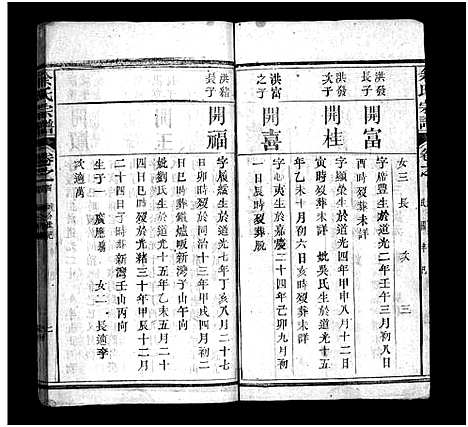 女三長 次 三
洪發長子
開富
字席豊生於道光二年壬午三月初八日
酉時歿葬未詳
洪發次子
開桂
字顯榮生於道光四年甲申八月十二日
寅時歿葬未詳 妣吳氏生於道光十五
年乙未十月初六日亥時歿葬未詳
洪富之子
開喜
字心夷生於嘉慶二十四年己卯九月初
一日辰時歿葬脱
洪緒長子
開福
字履緣生於道光七年丁亥八月二十七
日卯時歿於同治十三年甲戌四月初二
日巳時葬鑵爐瑕新灣子山午向
妣劉氏生於道光十五年乙未五月二十
四日巳時歿於光緒三十年甲辰十二月
二十四日子時葬新灣壬山丙向
生子一 廣應 女二 長適李
次適萬
余氏宗譜
卷之